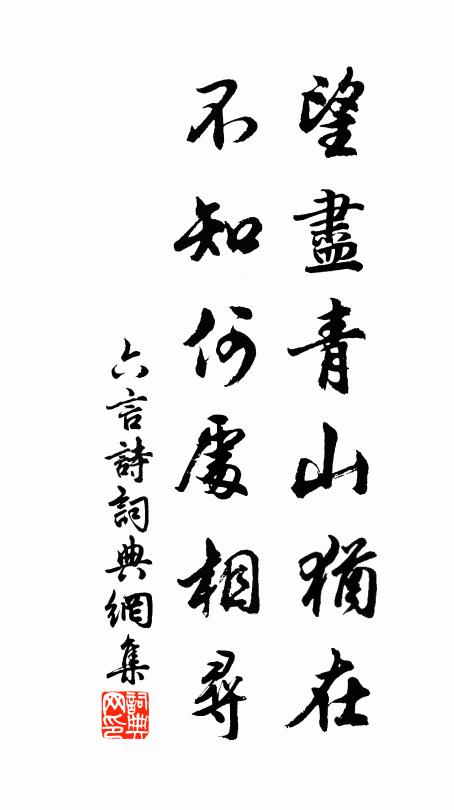 望盡青山猶在
不知何處相尋
六言詩詞典網集
詞典網印